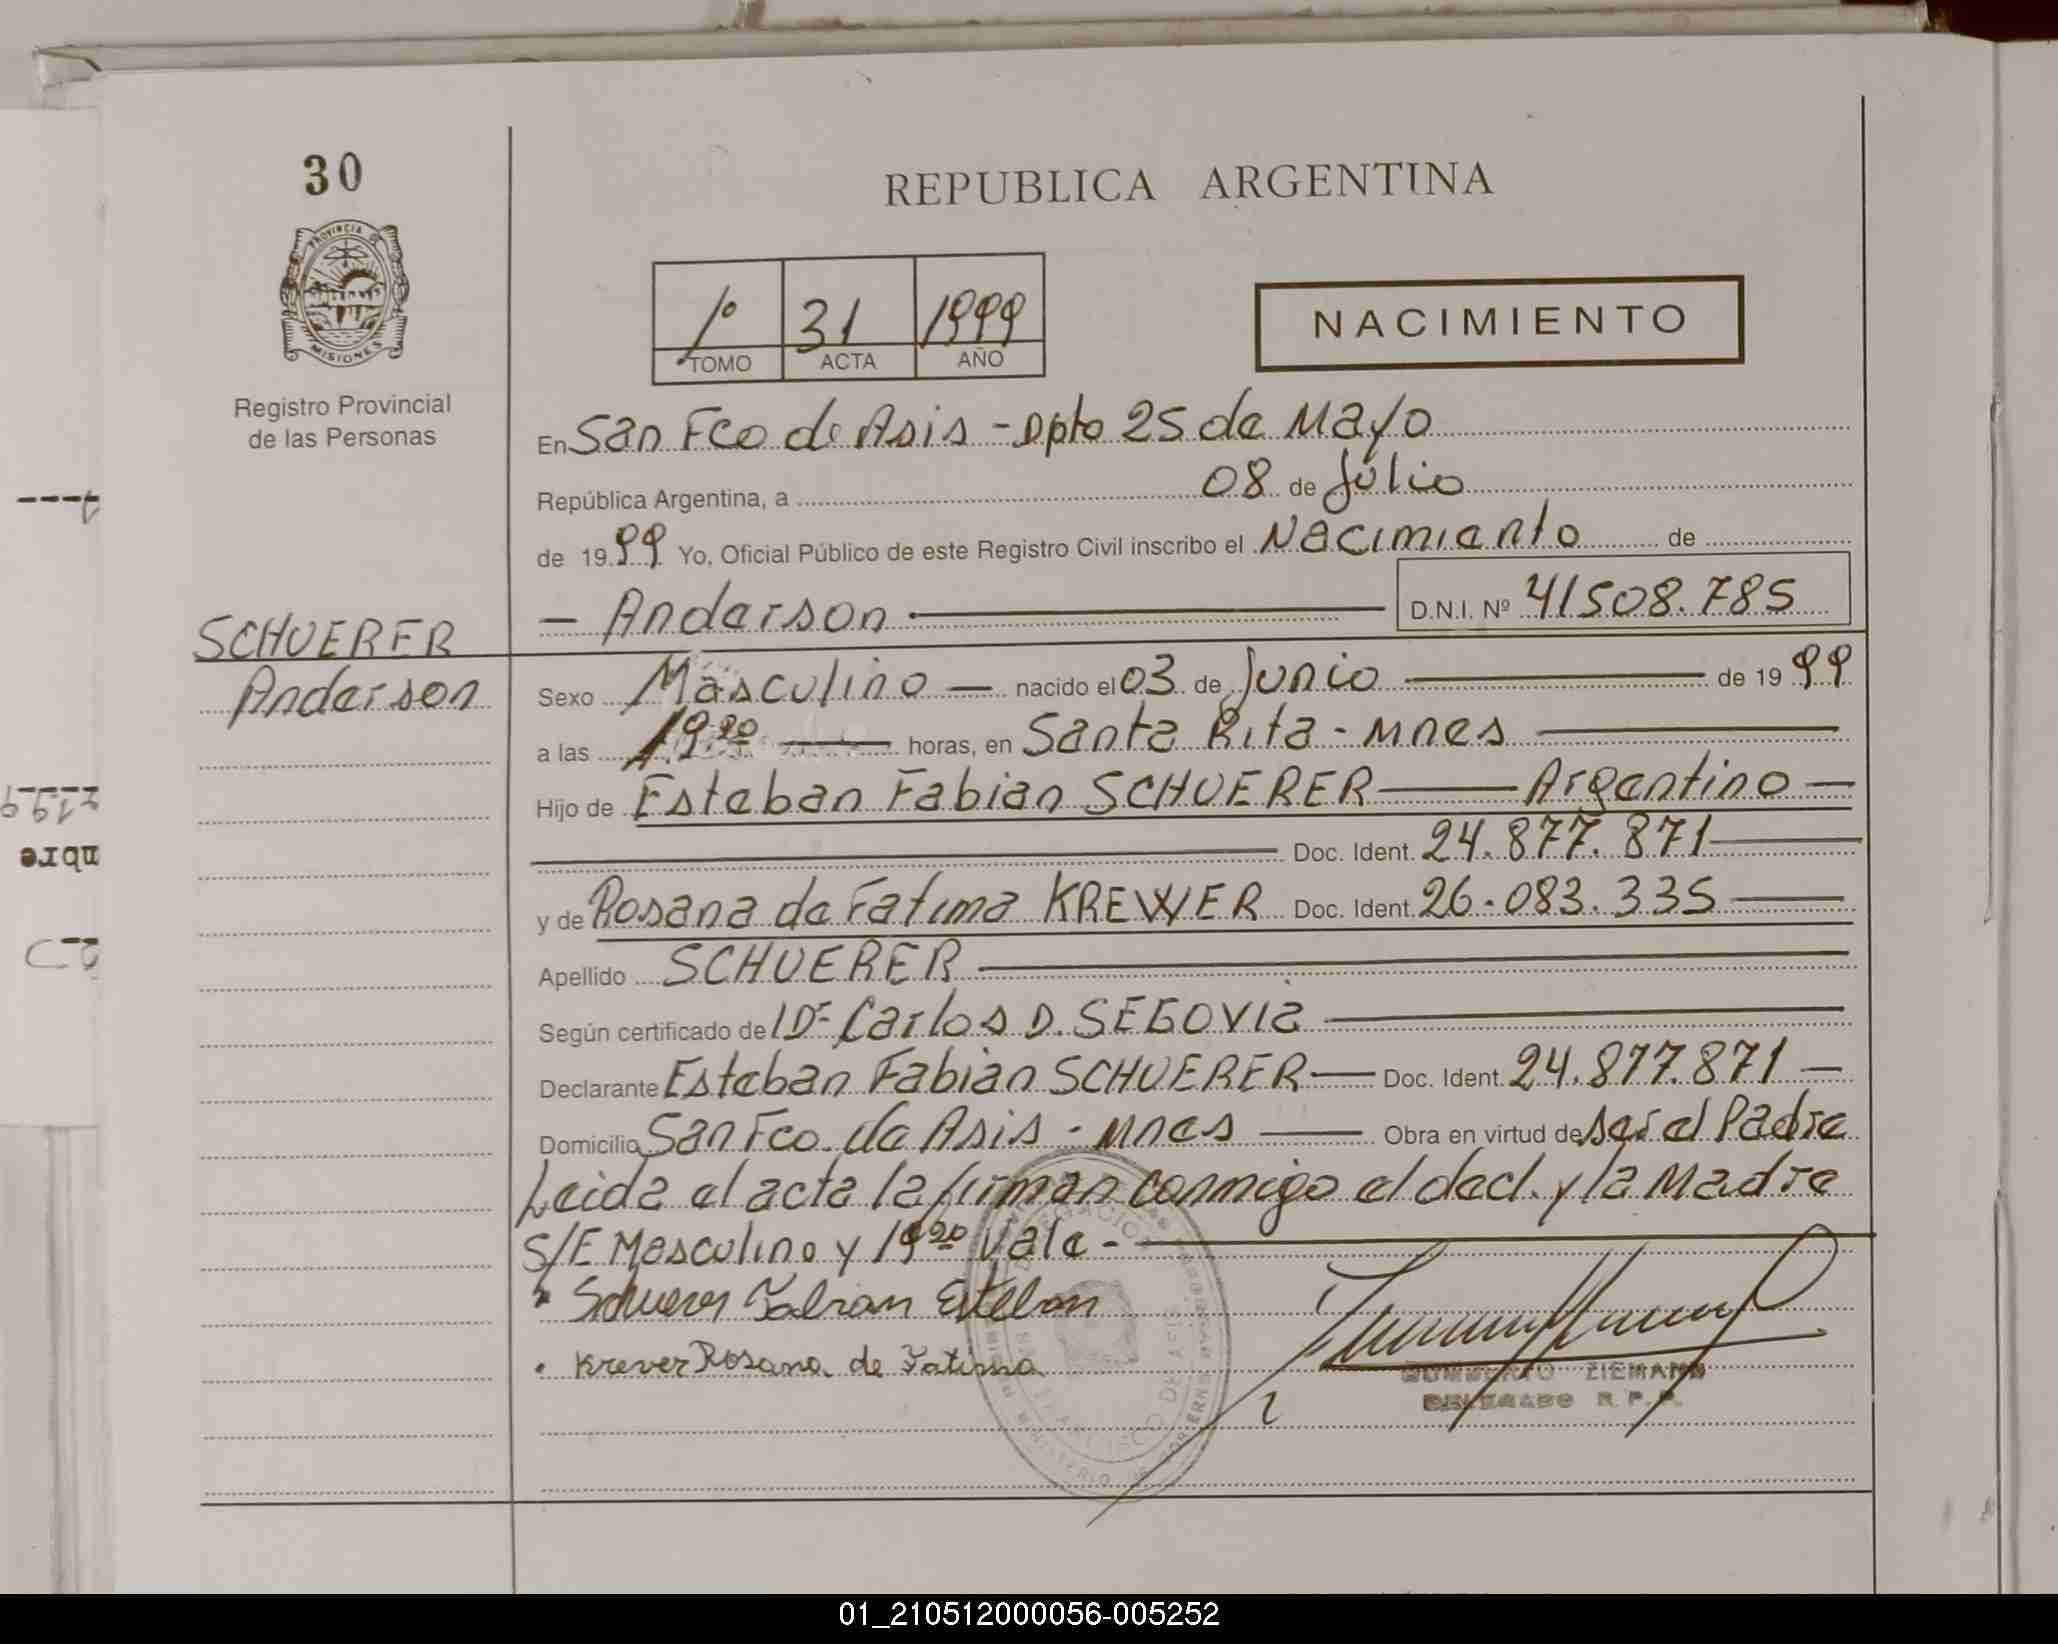 30
PROVINCIA DE
MISIONES
Registro Provincial
de las Personas
SCHUERER
Anderson
REPUBLICA ARGENTINA
1º 31 1999
TOMO ACTA AÑO
NACIMIENTO
En San Fco de Asis - Dpto 25 de Mayo
República Argentina, a 08 de Julio
de 1999 Yo, Oficial Público de este Registro Civil inscribo el Nacimiento de
- Anderson D.N.I. Nº 41508.785
Sexo Masculino - nacido el 03 de Junio de 1999
a las 19 20 horas, en Santa Rita - Mnes
Hijo de Esteban Fabian SCHUERER - Argentino -
Doc. Ident. 24.877.871
y de Rosana de Fatima KREWER Doc. Ident. 26.083.335
Apellido SCHUERER
Según certificado de Dr. Carlos D. SEGOVIA
Declarante Esteban Fabian SCHUERER - Doc. Ident. 24.877.871 -
Domicilio San Fco. de Asis - Mnes Obra en virtud de ser el Padre
Leida el acta la firman conmigo el decl. y la Madre
S/E Masculino y 19 20 Vale -
Schuerer Fabian Esteban
Krever Rosana de Fatima
HUMBERTO ZIEMANN
DELEGADO R.P.P.
01_210512000056-005252